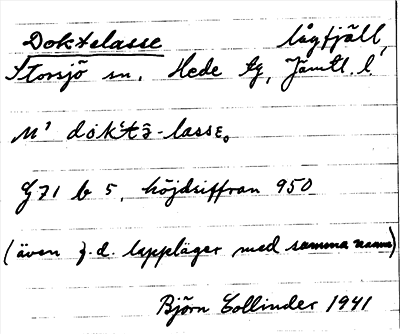 Doktelasse lågfjäll,
Storsjö sn. Hede tg, Jämtl. l.
M' 
G 71 b 5, höjdsiffran 950
(även f.d. lappläger med samma namn)
Björn Collinder 1941